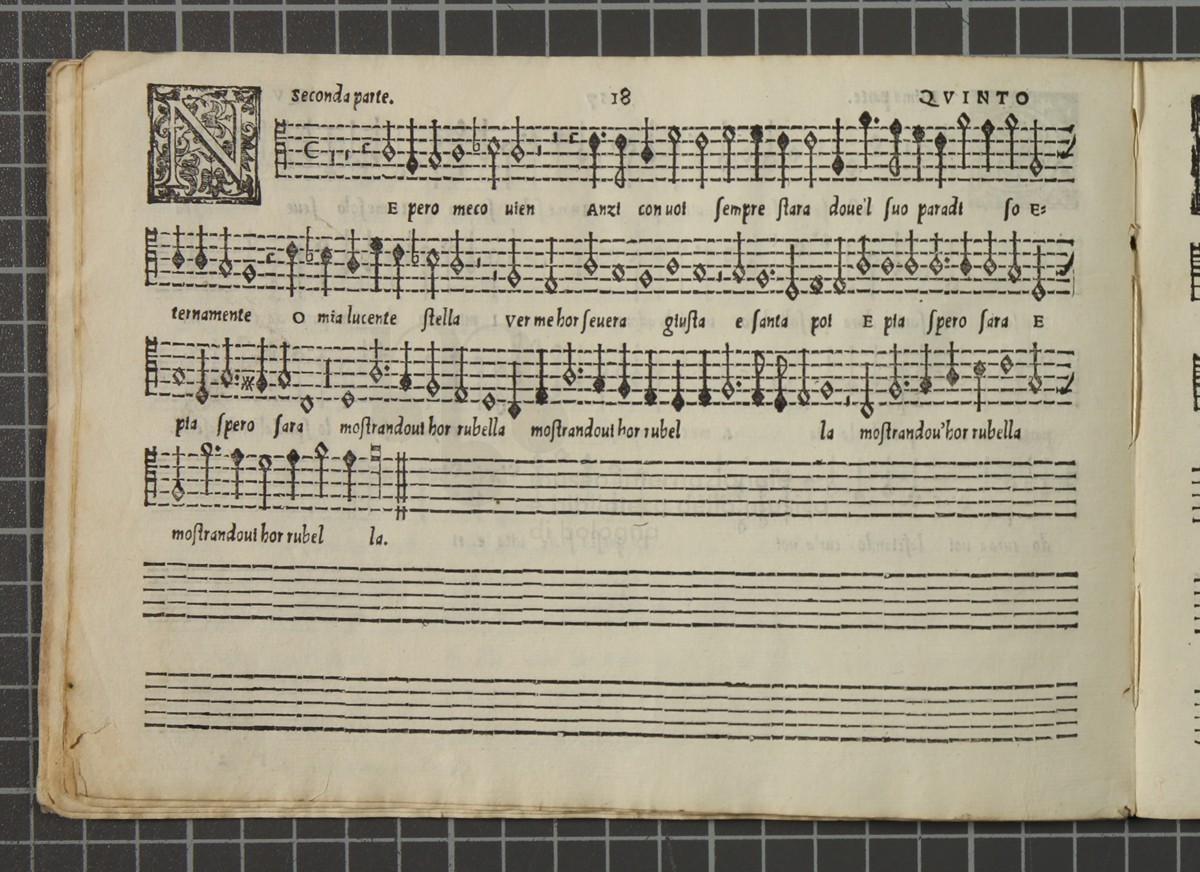 Seconda parte. 18 QVINTO
N E pero meco uien Anzi con uoi sempre stara doue'l suo paradi so E=
ternamente O mia lucente stella Ver me hor seuera giusta e santa poi E pia spero sara E
pia spero sara mostrandoui hor rubella mostrandoui hor rubel la mostrandou'hor rubella
mostrandoui hor rubel la.